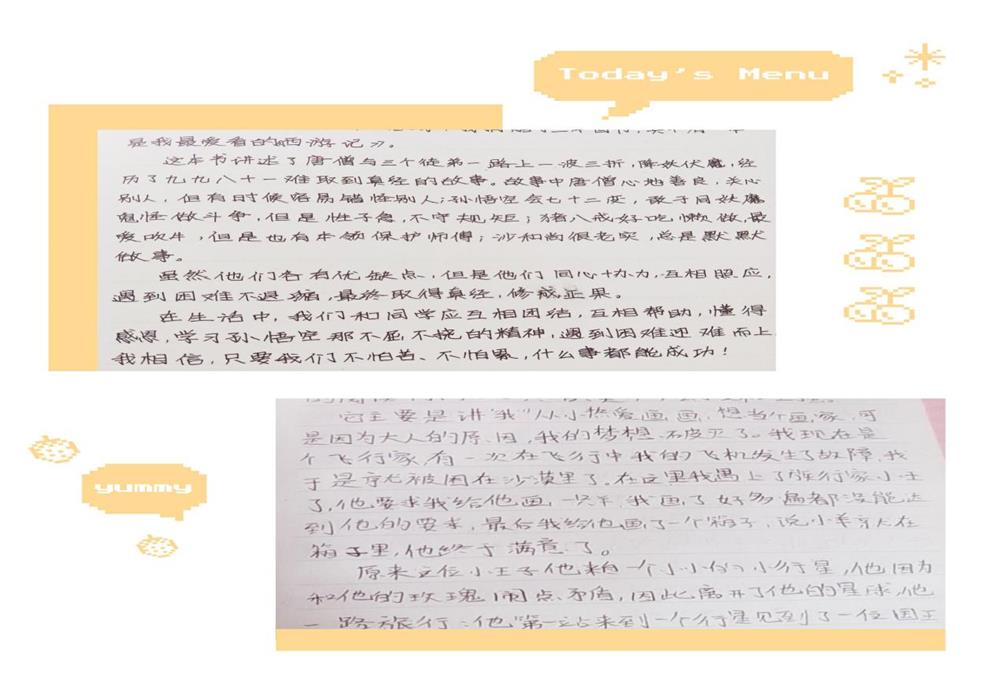 Today's Menu
是我最爱看的西游记》。
这本书讲述了唐僧与三个徒弟一路上一波三折，降妖伏魔，经
历了九九八十一难取到真经的故事。故事中唐僧心地善良，关心
别人，但有时候容易错怪别人；孙悟空会七十二变，敢于同妖魔
鬼怪做斗争，但是性子急，不守规矩；猪八戒好吃懒做，最
爱吹牛，但是也有本领保护师傅；沙和尚很老实，总是默默
做事。
虽然他们各有优缺点，但是他们同心协力，互相照应，
遇到困难不退缩，最终取得真经，修成正果。
在生活中，我们和同学应互相团结，互相帮助，懂得
感恩，学习孙悟空那不屈不挠的精神，遇到困难迎难而上
我相信，只要我们不怕苦、不怕累，什么事都能成功！
它主要是讲"我"从小热爱画画，想当个画家，可
是因为大人的原因，我的梦想破灭了。我现在是
个飞行家，有一次在飞行中我的飞机发生了故障，我
于是就被困在沙漠里了。在这里我遇上了旅行家小王
了，他要求我给他画一只羊，我画了好多遍都没能达
到他的要求，最后我给他画了一个箱子，说小羊就在
箱子里，他终于满意了。
原来这位小王子他来自一个小小的小行星，他因为
和他的玫瑰闹点矛盾，因此离开了他的星球，他
一路旅行：他第一站来到一个行星见到了一位国王
yummy